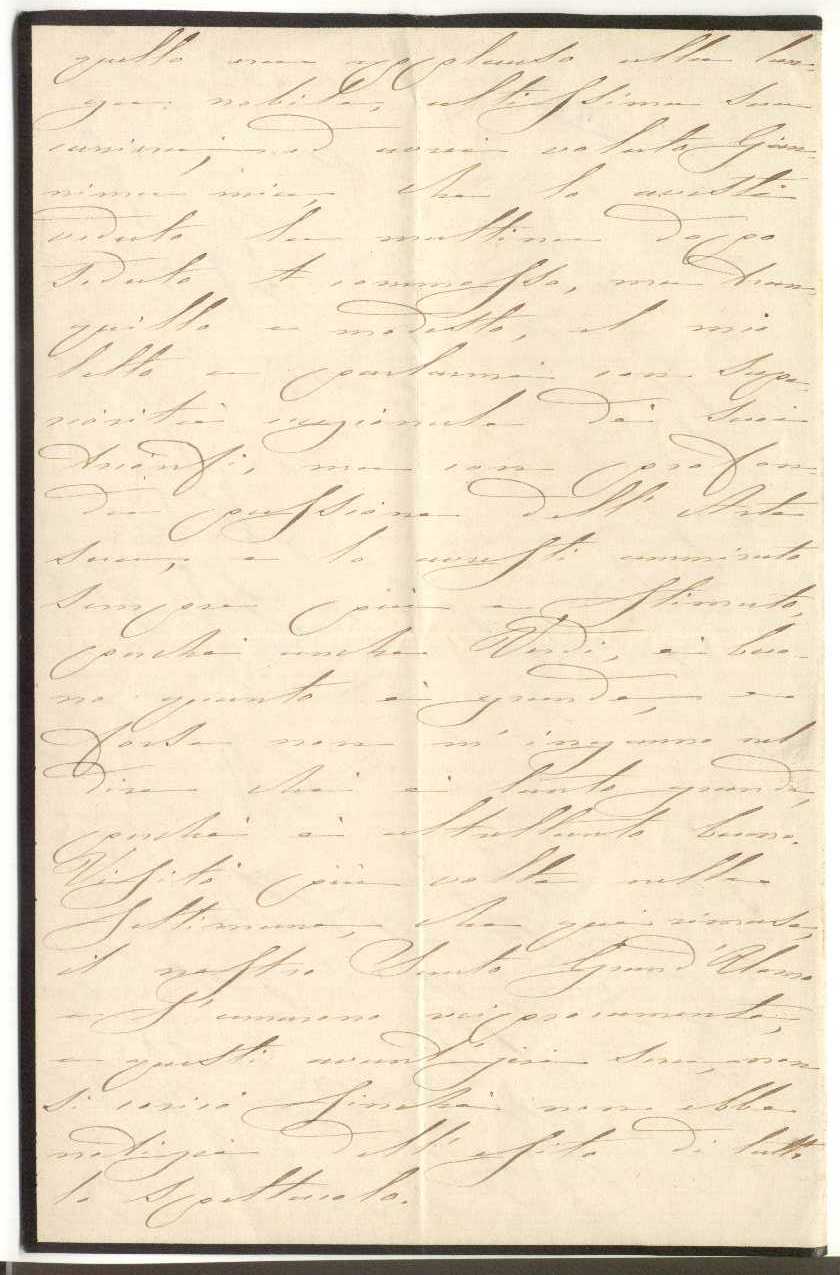 quello un applauso alla lun-
ga, nobile, altissima sua
carriera; ed avrei voluto Gian-
nina mia, che lo avesti
veduto la mattina dopo
seduto e commosso, ma tran-
quillo e modesto, al mio
letto e parlarmi con supe-
riorità ragionata dei suoi
trionfi, ma con profon-
da passione dell' Arte
sua, e lo avresti ammirato
sempre più e stimato,
perché anche Verdi, è buo-
no quanto è grande, e
forse non m' inganno nel
dire che è tanto grande,
perché è altrettanto buono.
Visitò più volte nella
Settimana, che qui rimase,
il nostro Santo Grand' Uomo
e s' amarono reciprocamente,
e questi avant' jeri sera, non
si coricò finché non ebbe
notizia dell' esito di tutto
lo spettacolo.